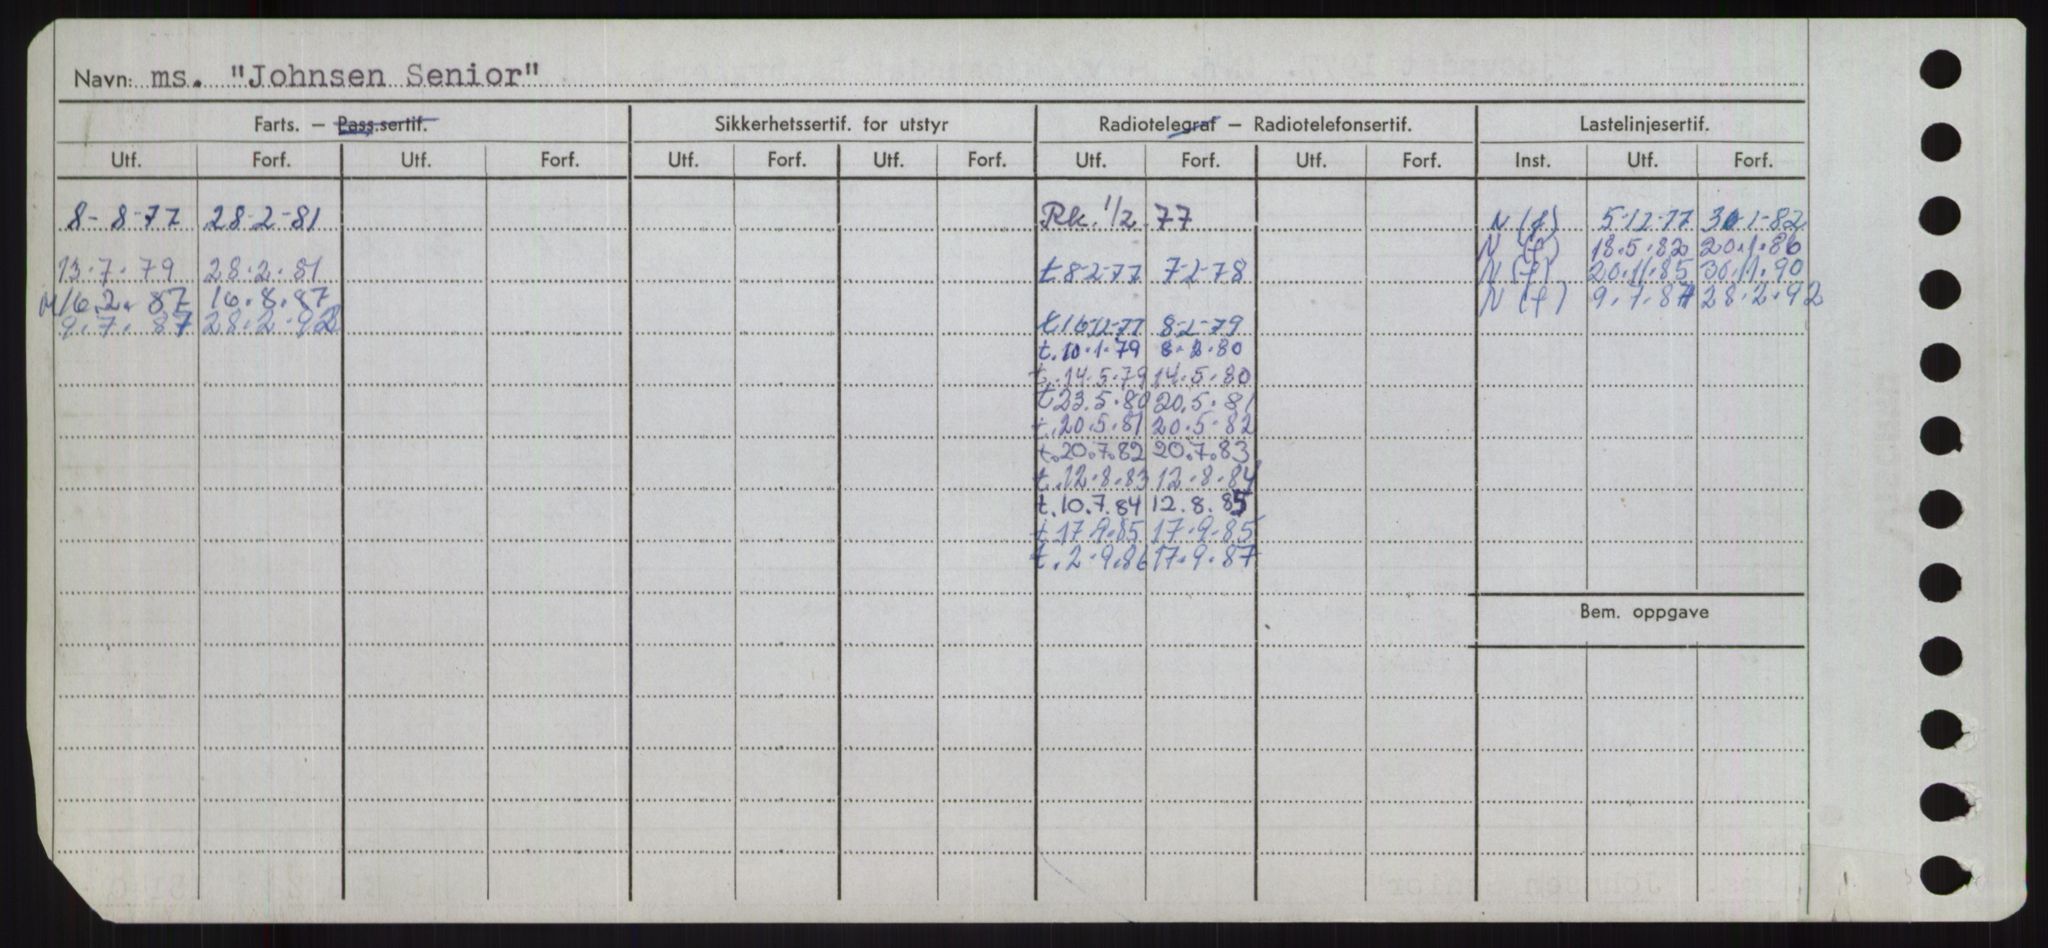 Navn: ms. "Johnsen Senior"
Farts. — Pass.sertif. Sikkerhetssertif. for utstyr Radiotelegraf — Radiotelefonsertif. Lastelinjesertif.
Utf. Forf. Utf. Forf. Utf. Forf. Utf. Forf. Utf. Forf. Utf. Forf. Inst. Utf. Forf.
8-8-77 28-2-81 Rk. 1/2.77 N (f) 5-12-77 30-1-82
N (f) 18.5.82 20.1.86
13.7.79 28.2.81 t 8-2-77 7-2-78 N (f) 20.11.85 30.11.90
M 16.2.87 16.8.87 N (f) 9.7.87 28.2.92
9.7.87 28.2.92 t 16-12-77 8-2-79
t. 10.1.79 8.2.80
t. 14.5.79 14.5.80
t 23.5.80 20.5.81
t. 20.5.81 20.5.82
t. 20.7.82 20.7.83
t. 12.8.83 12.8.84
t. 10.7.84 12.8.85
t. 17.9.85 17.9.85
t. 2.9.86 17.9.87
Bem. oppgave